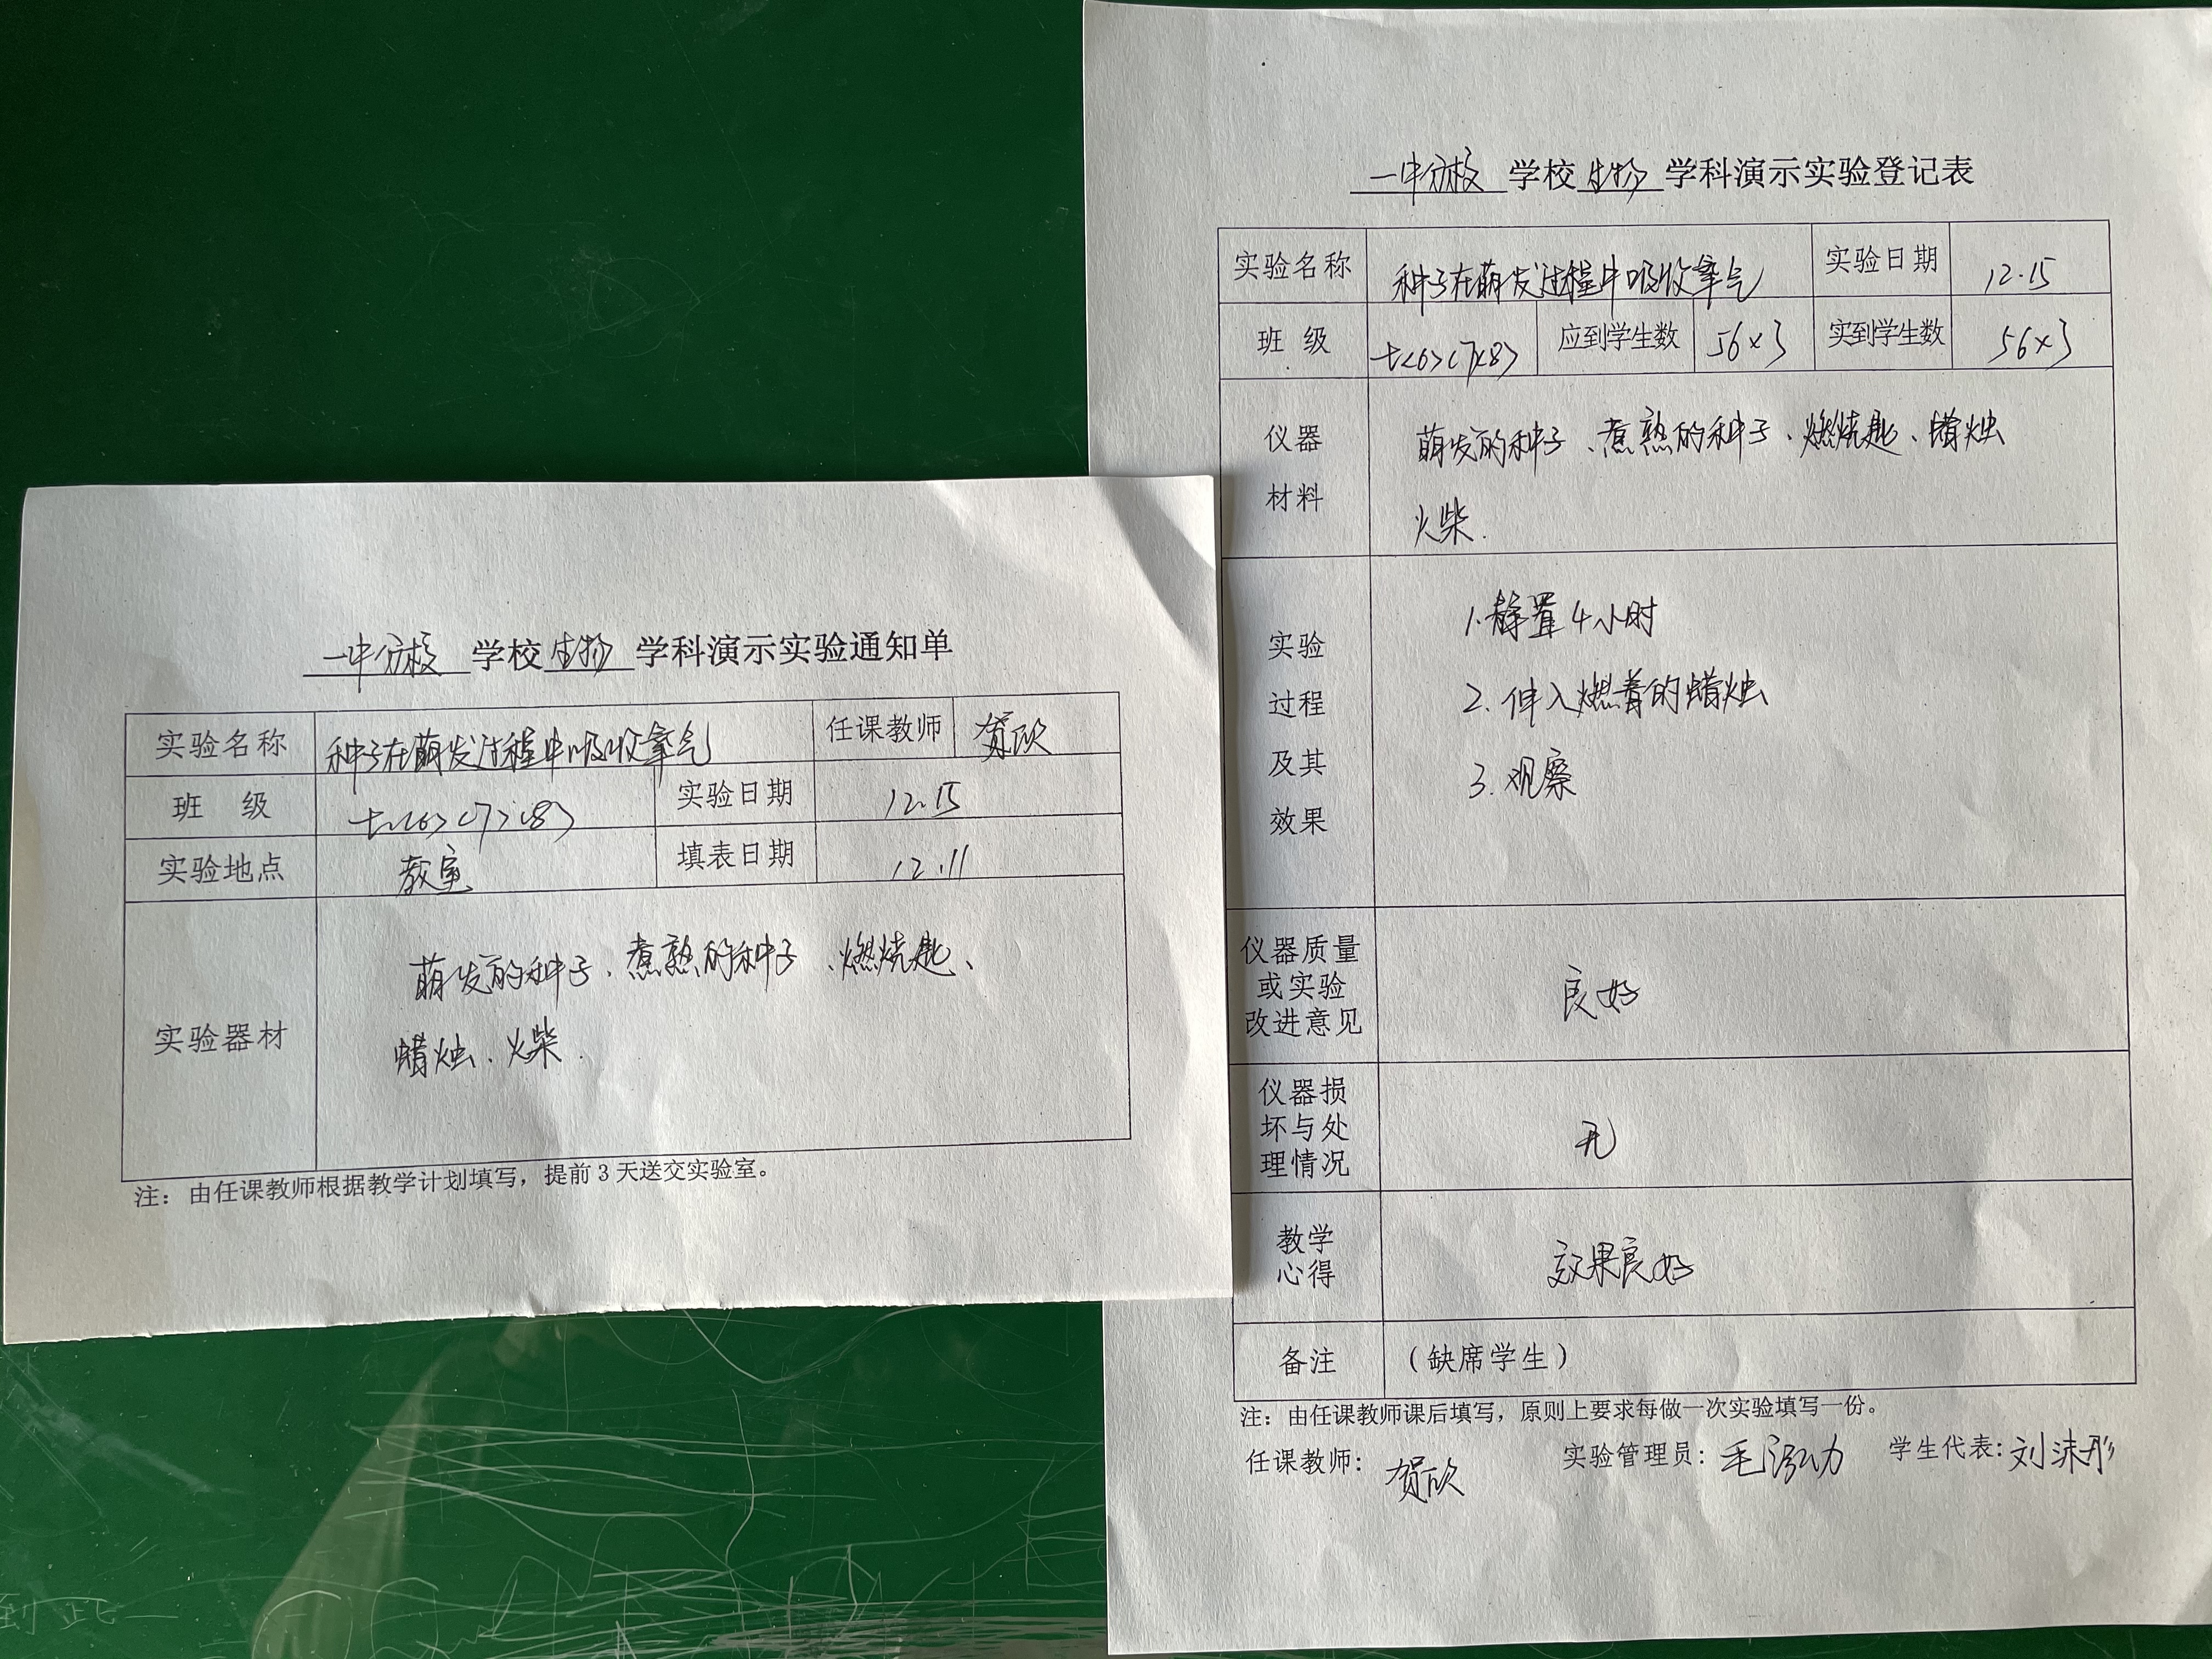 一中分校 学校 生物 学科演示实验通知单
实验名称 种子在萌发过程中吸收氧气 任课教师 贺欣
班 级 七<6><7><8> 实验日期 12.15
实验地点 教室 填表日期 12.11
实验器材
萌发的种子、煮熟的种子、燃烧匙、
蜡烛、火柴.
注：由任课教师根据教学计划填写，提前3天送交实验室。
一中分校 学校 生物 学科演示实验登记表
实验名称 种子在萌发过程中吸收氧气 实验日期 12.15
班 级 七<6><7><8> 应到学生数 56×3 实到学生数 56×3
仪器
材料
萌发的种子、煮熟的种子、燃烧匙、蜡烛
火柴.
实验
过程
及其
效果
1.静置4小时
2.伸入燃着的蜡烛
3.观察
仪器质量
或实验
改进意见
良好
仪器损
坏与处
理情况
无
教学
心得
效果良好
备注 （缺席学生）
注：由任课教师课后填写，原则上要求每做一次实验填写一份。
任课教师：贺欣 实验管理员：毛泓力 学生代表：刘沫彤
到此一